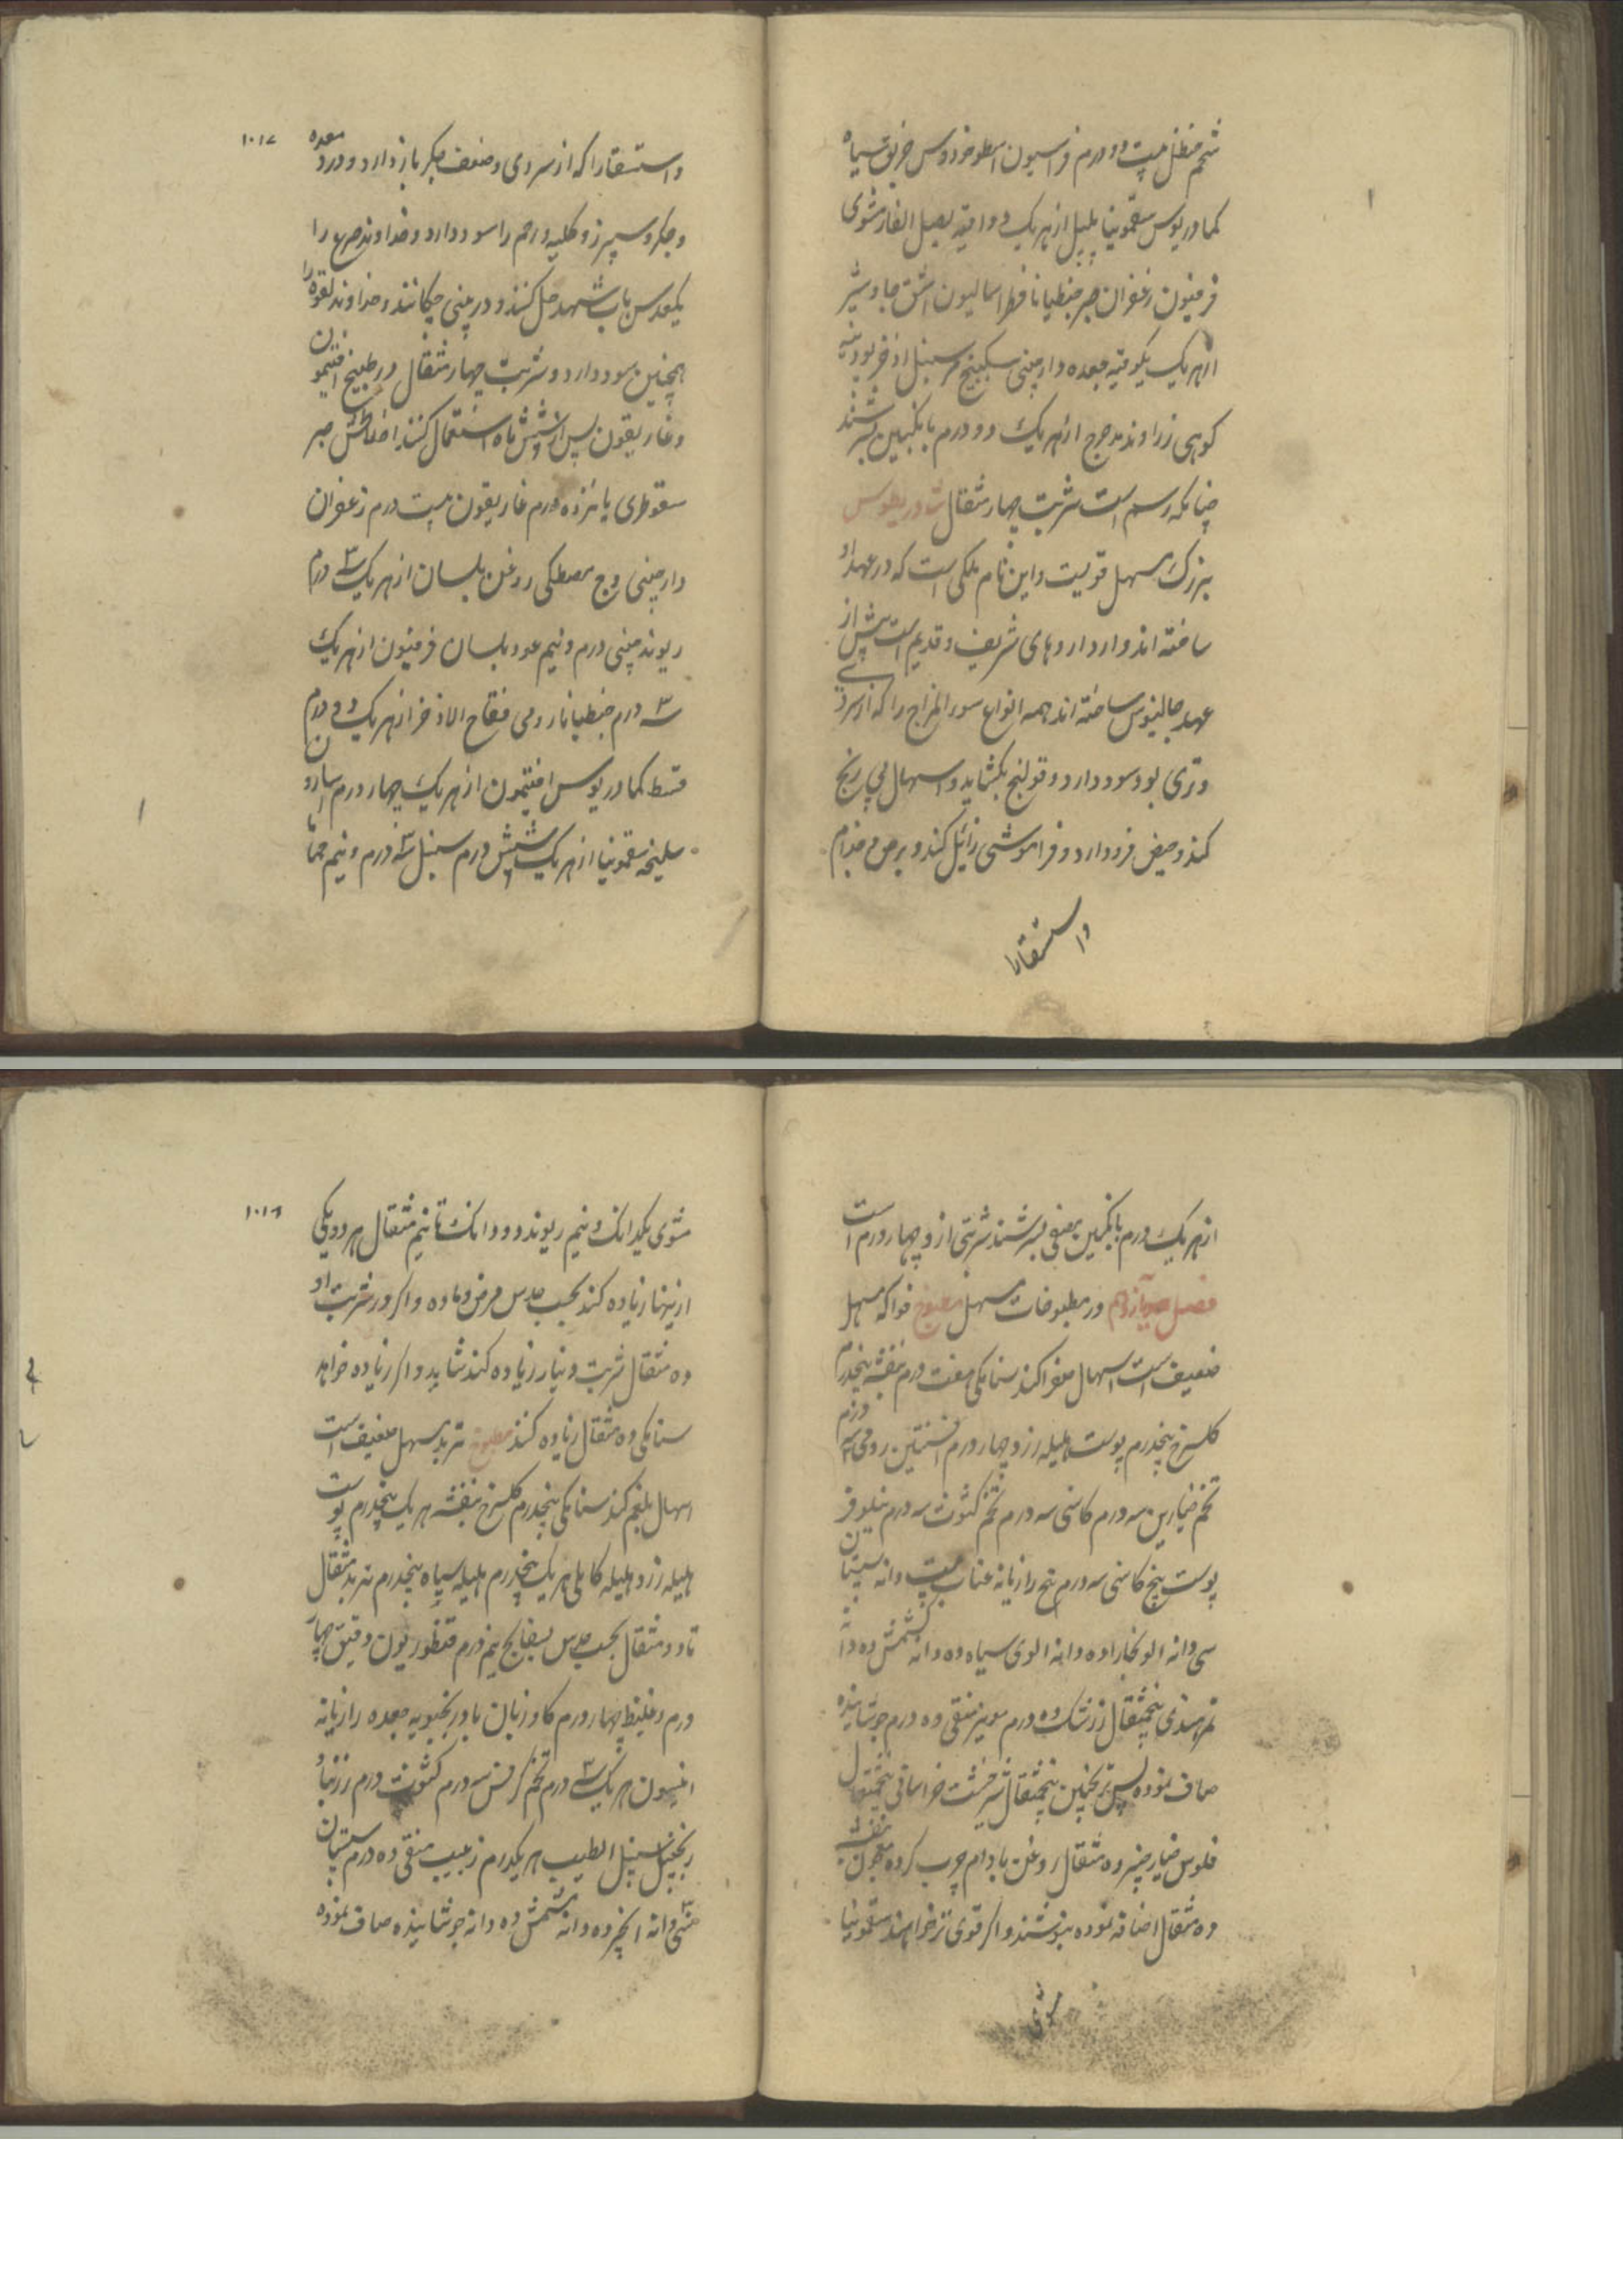 شحم حنظل بیست دو درم فراسیون اسطوخودوس خربق سیاه
کمادریوس سقمونیا پلپل از هر یک دو اوقیه بصل الفار مشوی
فرفیون زعفران صبر جنطیانا فطراسالیون اشق جاوشیر
از هر یک یکوقیه جعده دارچینی سکبینج مر سنبل اذخر پودینه
کوهی زراوند مدحرج از هر یک دو درم بانگبین بسرشند
چنانکه رسم است شربت چهار مثقال ثادریطوس
بزرک مسهل قویست و این نام ملکی است که در عهد او
ساخته اند و از داروهای شریف و قدیم است پیش از
عهد جالینوس ساخته اند همه انواع سوء المزاج را که از سردی
و تری بود سود دارد و قولنج بکشاید و اسهال بی رنج
کند و حیض فرود آرد و فراموشی زائل کند و برص و جذام
و استسقا را
۱۰۱۷
و استسقا را که از سردی و ضعف جکر باز دارد و درد معده
و جکر و سپرز و کلیه و رحم را سود دارد و خداوند صرع را
یکعدس باب شهد حل کنند و در بینی چکانند و خداوند لقوه را
همچنین سود دارد و شربت چهار مثقال در طبیخ افتیمون
و غاریقون پس از شش ماه استعمال کنند اخلاطش صبر
سقوطری پانزده درم غاریقون بیست درم زعفران
دارچینی وج مصطکی روغن بلسان از هر یک سه درم
ریوند چینی درم و نیم عود بلسان فرفیون از هر یک
سه درم جنطیانا رومی فقاح الاذخر از هر یک دو درم
قسط کمادریوس افتیمون از هر یک چهار درم اسارون
سلیخه سقمونیا از هر یک شش درم سنبل سه درم و نیم حماما
از هر یک درم بانگبین مصفی بسرشند شربتی از و چهار درم است
فصل دوازدهم در مطبوخات مسهل مطبوخ فواکه مسهل
ضعیف است اسهال صفرا کند سنا مکی هفت درم بنفشه پنجدرم
کلسرخ پنجدرم پوست هلیله زرد چهار درم افسنتین رومی سه درم
تخم خیارین سه درم کاسنی سه درم تخم کشوث سه درم نیلوفر
پوست بیخ کاسنی سه درم بیخ رازیانه عناب بیست دانه سپستان
سی دانه آلو بخارا ده دانه آلوی سیاه ده دانه کشمش ده دانه
تمر هندی پنجمثقال زرشک ده درم مویز منقی ده درم جوشانیده
صاف نموده پس ترنجبین پنجمثقال شیرخشت خراسانی پنجمثقال
فلوس خیار چنبر ده مثقال روغن بادام چرب کرده معجون بنفشه
ده مثقال اضافه نموده بنوشند و اکر قوی تر خواهند سقمونیا
مشوی
۱۰۱۶
مشوی یکدانک و نیم ریوند دو دانک تا نیم مثقال هر دو یکی
از اینها زیاده کند بحسب حدس مرض و ماده و اکر در شربت او
ده مثقال شربت دینار زیاده کند شاید و اکر زیاده خواهد
سنا مکی ده مثقال زیاده کند مطبوخ تربد مسهل ضعیف است
اسهال بلغم کند سنا مکی پنجدرم کلسرخ بنفشه هر یک پنجدرم پوست
هلیله زرد هلیله کابلی هر یک پنجدرم هلیله سیاه پنجدرم تربد مثقال
تا دو مثقال بحسب حدس بسفایج نیم درم قنطوریون دقیق چهار
درم و غلیظ چهار درم کاوزبان بادرنجبویه جعده رازیانه
انیسون هر یک سه درم تخم کرفس سه درم کشوث درم زرنباد
زنجبیل سنبل الطیب هر یکدرم زبیب منقی ده درم سپستان
سی دانه انجیر ده دانه مشمش ده دانه جوشانیده صاف نموده